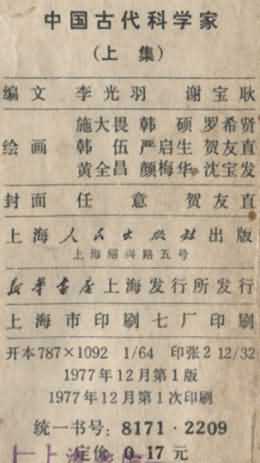 中国古代科学家
(上 集)
编文 李光羽 谢宝耿
施大畏 韩硕 罗希贤
绘画 韩伍 严启生 贺友直
黄全昌 颜梅华 沈宝发
封面 任意 贺友直
上海人民出版社出版
上海绍兴路五号
新华书店上海发行所发行
上海市印刷七厂印刷
开本787×1092 1/64 印张2 12/32
1977年12月第1版
1977年12月第1次印刷
统一书号: 8171·2209
定价 0.17 元